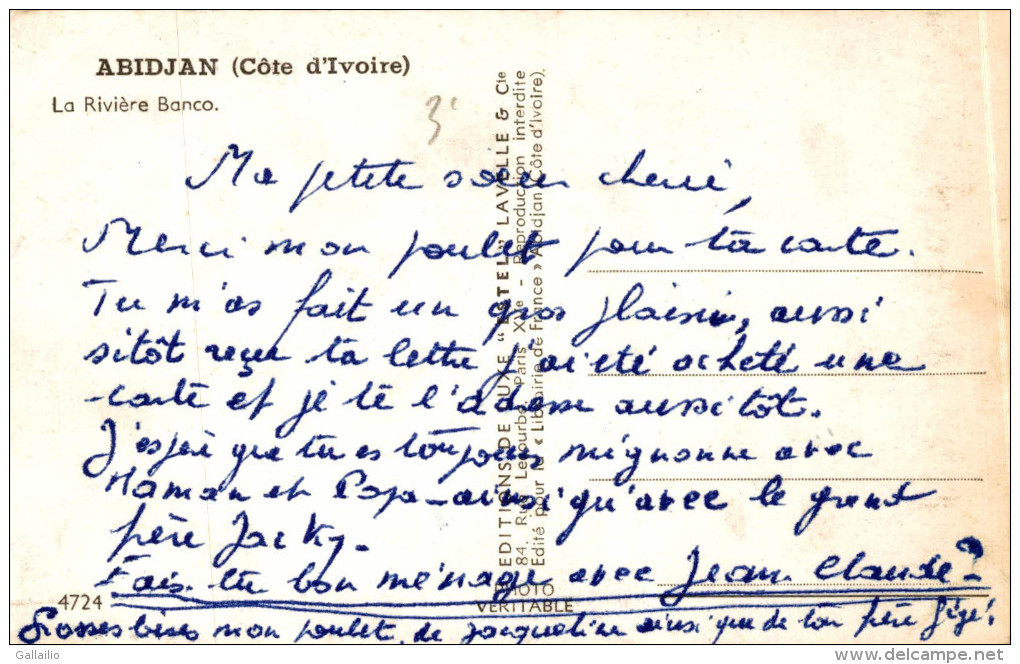 ABIDJAN (Côte d'Ivoire)
La Rivière Banco.
3'
Ma petite sœur cherie,
Merci mon poulet pour ta carte.
Tu m'as fait un gros plaisir, aussi
sitôt reçue ta lettre j'ai été acheté une
carte et je te l'adresse aussitôt.
J'espère que tu es toujours mignonne avec
Maman et Papa - ainsi qu'avec le grand
frère Jacky.
Fais-tu bon ménage avec Jean Claude?
Grosses bises mon poulet de Jacqueline ainsi que de ton frère Gégé!
4724
EDITIONS DE LUXE "ESTEL" LAVELLE & Cie
84, Rue Lecourbe, Paris XVe - Reproduction interdite
Edité pour la « Librairie de France » Abidjan (Côte d'Ivoire).
PHOTO
VERITABLE
Gallailo
© www.delcampe.net